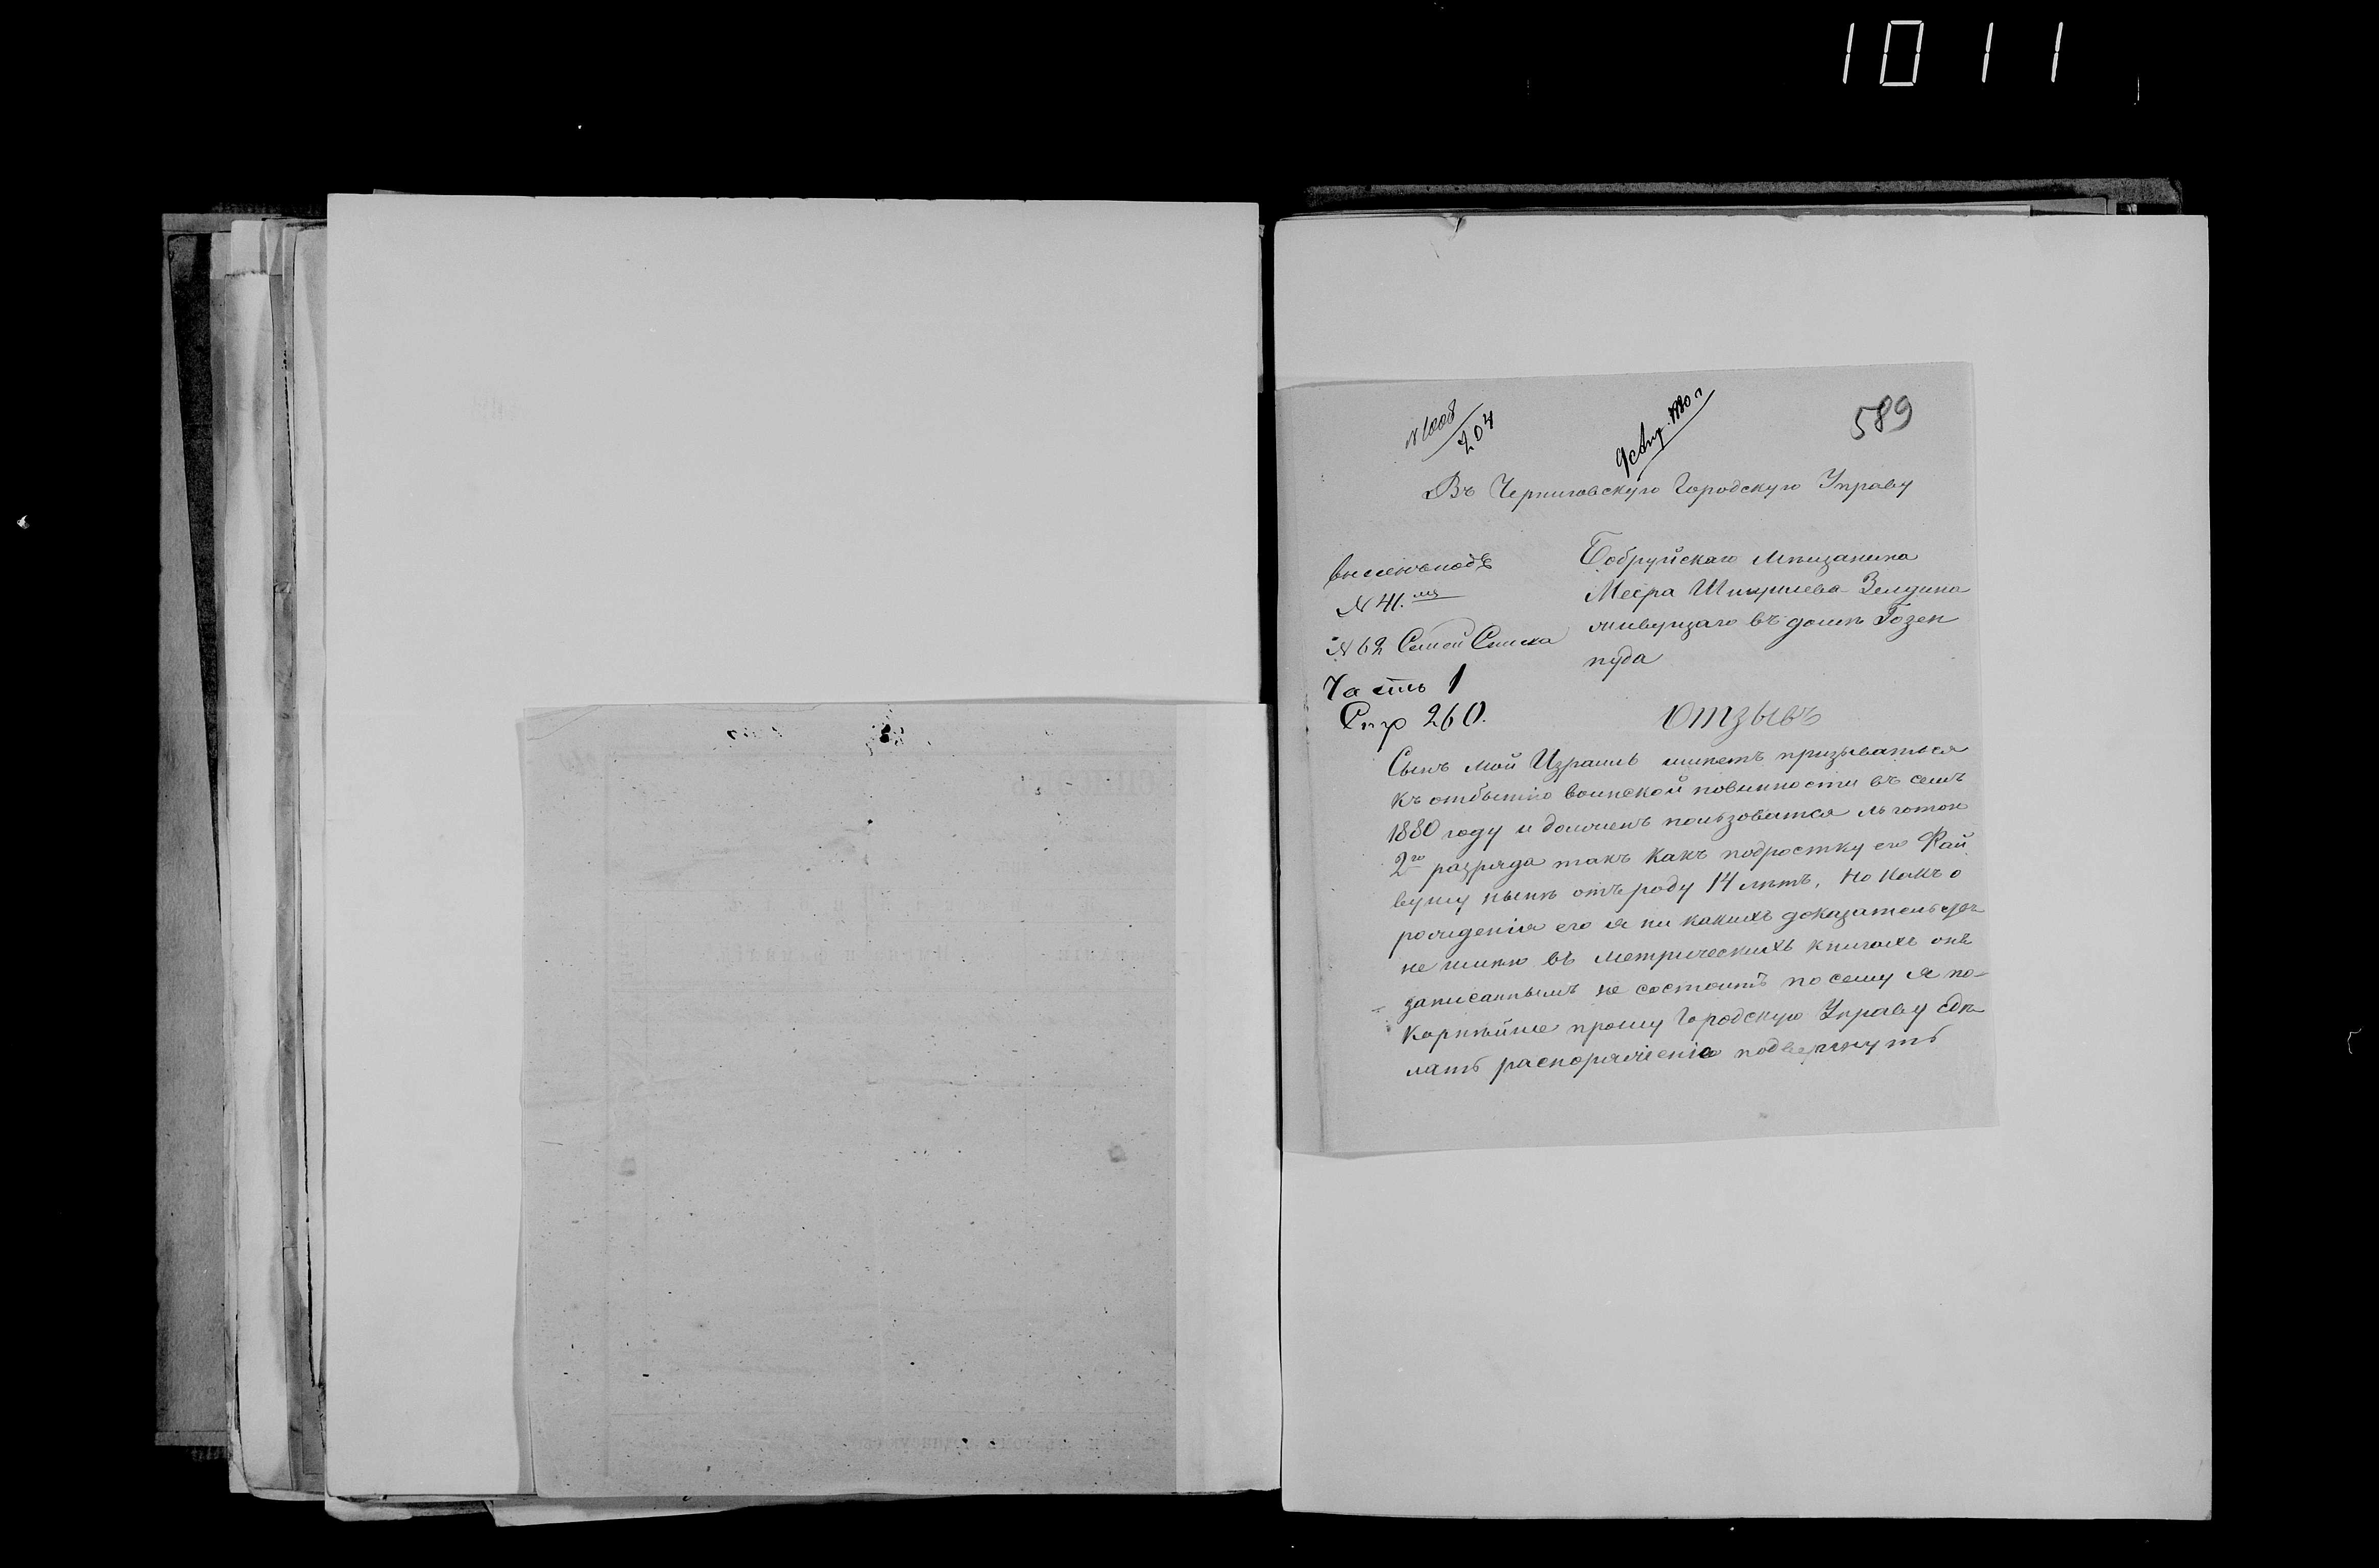 1011
N 1008
204
9 Апр. 1880 г
589
Въ Черниговскую Городскую Управу
Бобруйскаго Мѣщанина
Меера Шмуилева Зелдина
живущаго въ домѣ Гозен
пуда
N 41.
N 62 Семей Списка
Часть 1
Стр 260.
Отзывъ
Сынъ мой Израиль имѣетъ призываться
къ отбытію воинской повинности въ семъ
1880 году и долженъ пользоватся льготою
2го разряда такъ какъ подростку его Фай
вушу нынѣ отъ роду 14 лѣтъ, но какъ о
рожденія его я ни какихъ доказательствъ
не имѣю въ метрическихъ книгахъ онъ
записаннымъ не состоитъ по сему я по-
корнѣйше прошу Городскую Управу сдѣ
лать распоряженіе подвергнуть